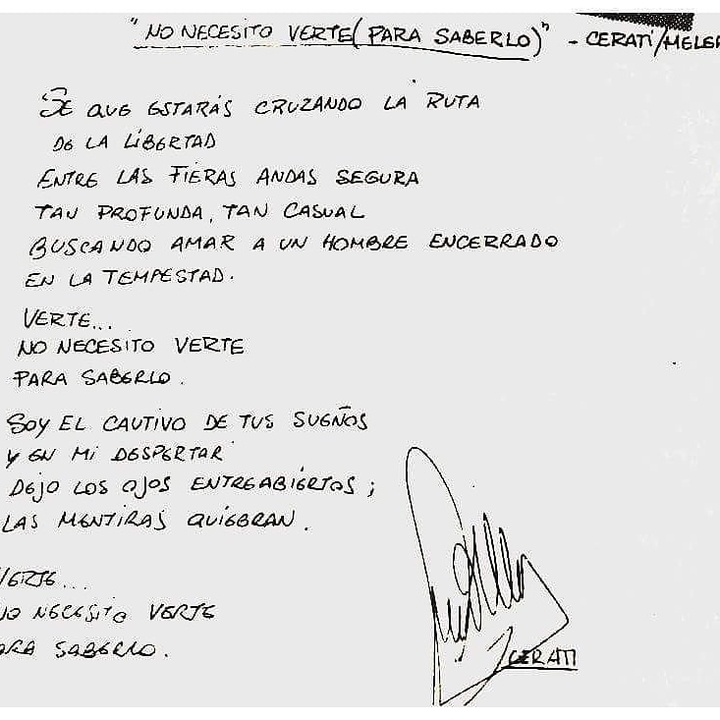 "NO NECESITO VERTE (PARA SABERLO)" - CERATI/MELER
SE QUE ESTARÁS CRUZANDO LA RUTA
DE LA LIBERTAD
ENTRE LAS FIERAS ANDAS SEGURA
TAN PROFUNDA, TAN CASUAL
BUSCANDO AMAR A UN HOMBRE ENCERRADO
EN LA TEMPESTAD.
VERTE...
NO NECESITO VERTE
PARA SABERLO.
SOY EL CAUTIVO DE TUS SUEÑOS
Y EN MI DESPERTAR
DEJO LOS OJOS ENTREABIERTOS;
LAS MENTIRAS QUIEBRAN.
VERTE...
NO NECESITO VERTE
PARA SABERLO.
CERATI